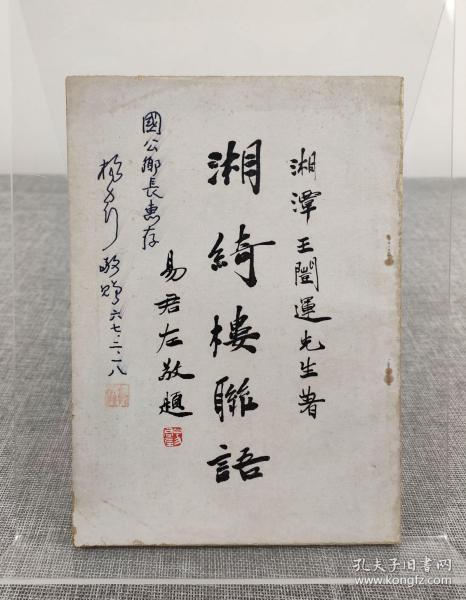 湘潭王闓運先生著
湘綺樓聯語
易君左敬題
國公鄉長惠存
敬贈 六七、二、一八
孔夫子旧书网
www.kongfz.com